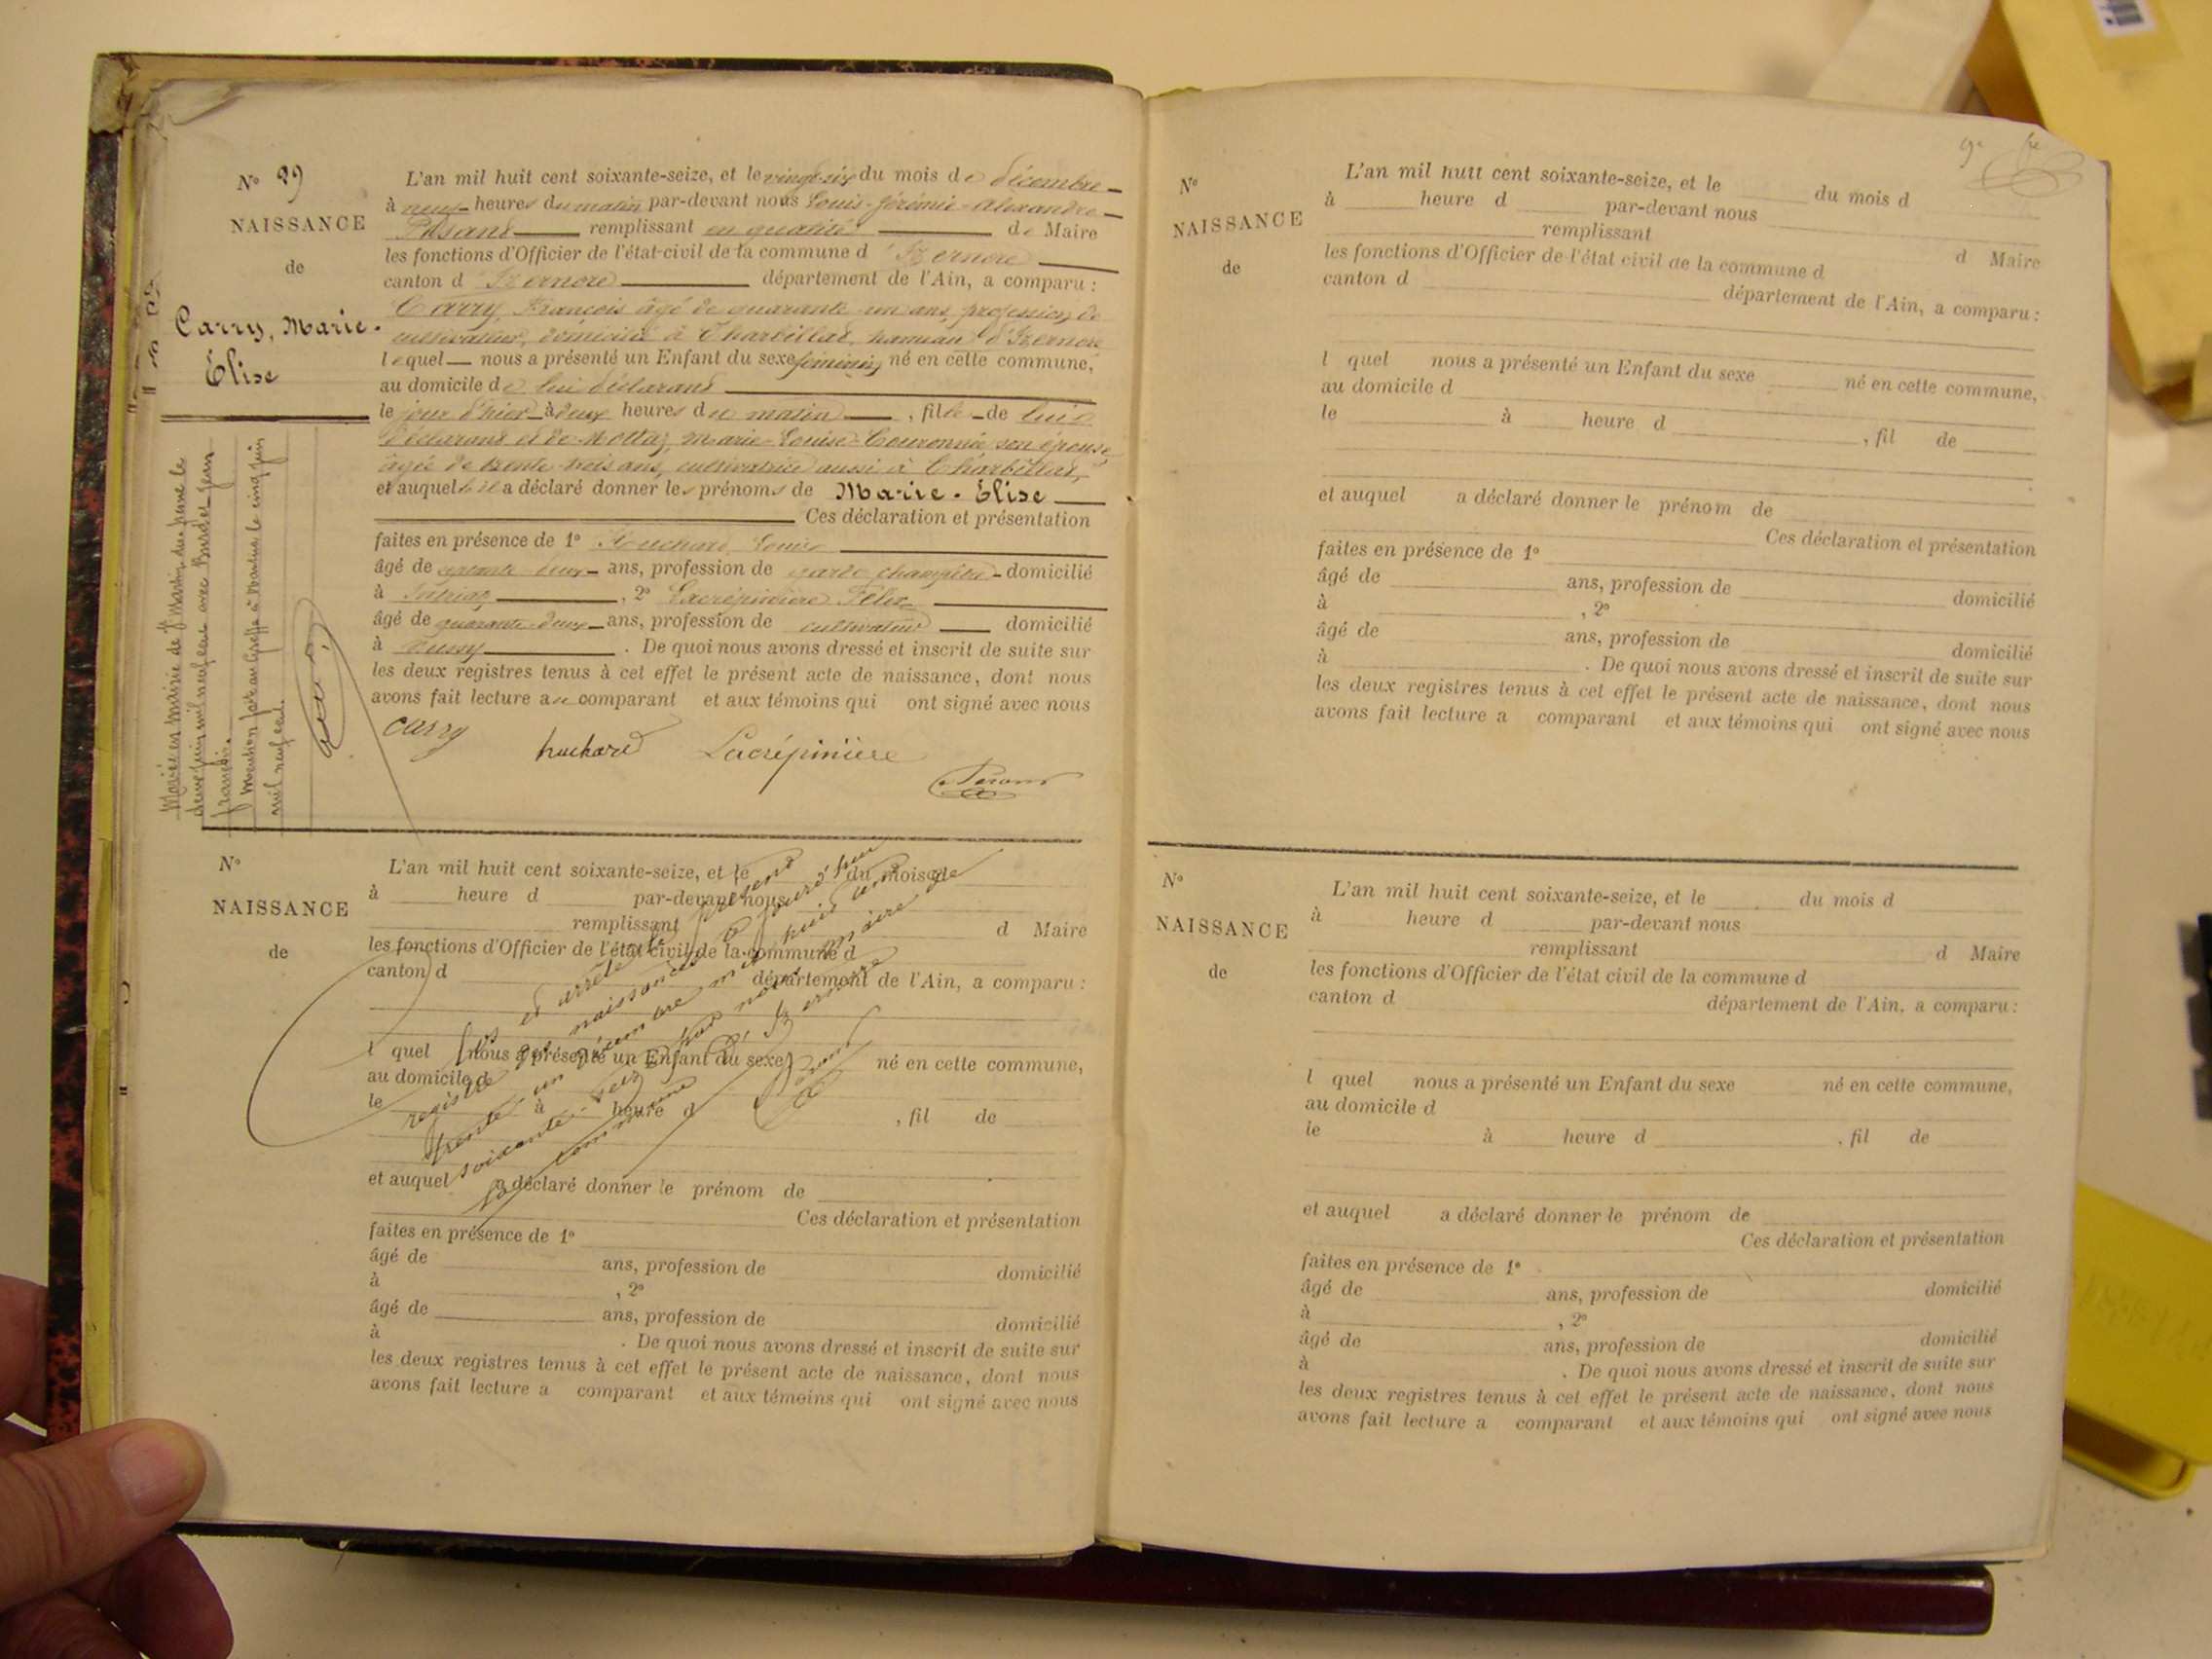 N° 29
NAISSANCE
de
Carry, Marie-
Élise
L'an mil huit cent soixante-seize, et le vingt-six du mois de décembre
à neuf heures du matin par-devant nous Louis-Jérémie-Alexandre
remplissant en qualité de Maire
les fonctions d'Officier de l'état-civil de la commune d'Izernore
canton d'Izernore département de l'Ain, a comparu :
Carry, François âgé de quarante-un ans, profession de
cultivateur, domicilié à Charbillat, hameau d'Izernore
lequel nous a présenté un Enfant du sexe féminin, né en cette commune,
au domicile de lui déclarant
le jour d'hier à deux heures du matin, fille de lui
déclarant et de Mottaz, Marie-Louise-Couronnée son épouse
âgée de trente-trois ans, cultivatrice aussi à Charbillat,
et auquel il a déclaré donner les prénoms de Marie-Élise
Ces déclaration et présentation
faites en présence de 1° Louis
âgé de ans, profession de garde champêtre domicilié
à , 2° Lacrépinière Félix
âgé de quarante-deux ans, profession de cultivateur domicilié
à . De quoi nous avons dressé et inscrit de suite sur
les deux registres tenus à cet effet le présent acte de naissance, dont nous
avons fait lecture au comparant et aux témoins qui ont signé avec nous
Carry huchard Lacrépinière
Mariée en mairie de St Martin du frêne le
deux juin mil neuf cent avec Burdet Jean
françois.
Mention faite au Greffe à Nantua le cinq juin
mil neuf cent.
N°
NAISSANCE
de
L'an mil huit cent soixante-seize, et le du mois de
à heure d par-devant nous
remplissant d Maire
les fonctions d'Officier de l'état civil de la commune d
canton d département de l'Ain, a comparu :
l quel nous a présenté un Enfant du sexe né en cette commune,
au domicile d
le à heure d , fil de
et auquel a déclaré donner le prénom de
Ces déclaration et présentation
faites en présence de 1°
âgé de ans, profession de domicilié
à , 2°
âgé de ans, profession de domicilié
à . De quoi nous avons dressé et inscrit de suite sur
les deux registres tenus à cet effet le présent acte de naissance, dont nous
avons fait lecture a comparant et aux témoins qui ont signé avec nous
et arrêté le présent
registre des naissances aujourd'hui
trente-un décembre mil huit cent
soixante-seize par nous maire de
la commune d'Izernore
N°
NAISSANCE
de
L'an mil huit cent soixante-seize, et le du mois d
à heure d par-devant nous
remplissant d Maire
les fonctions d'Officier de l'état civil de la commune d
canton d département de l'Ain, a comparu :
l quel nous a présenté un Enfant du sexe né en cette commune,
au domicile d
le à heure d , fil de
et auquel a déclaré donner le prénom de
Ces déclaration et présentation
faites en présence de 1°
âgé de ans, profession de domicilié
à , 2°
âgé de ans, profession de domicilié
à . De quoi nous avons dressé et inscrit de suite sur
les deux registres tenus à cet effet le présent acte de naissance, dont nous
avons fait lecture a comparant et aux témoins qui ont signé avec nous
N°
NAISSANCE
de
L'an mil huit cent soixante-seize, et le du mois d
à heure d par-devant nous
remplissant d Maire
les fonctions d'Officier de l'état civil de la commune d
canton d département de l'Ain, a comparu :
l quel nous a présenté un Enfant du sexe né en cette commune,
au domicile d
le à heure d , fil de
et auquel a déclaré donner le prénom de
Ces déclaration et présentation
faites en présence de 1°
âgé de ans, profession de domicilié
à , 2°
âgé de ans, profession de domicilié
à . De quoi nous avons dressé et inscrit de suite sur
les deux registres tenus à cet effet le présent acte de naissance, dont nous
avons fait lecture a comparant et aux témoins qui ont signé avec nous